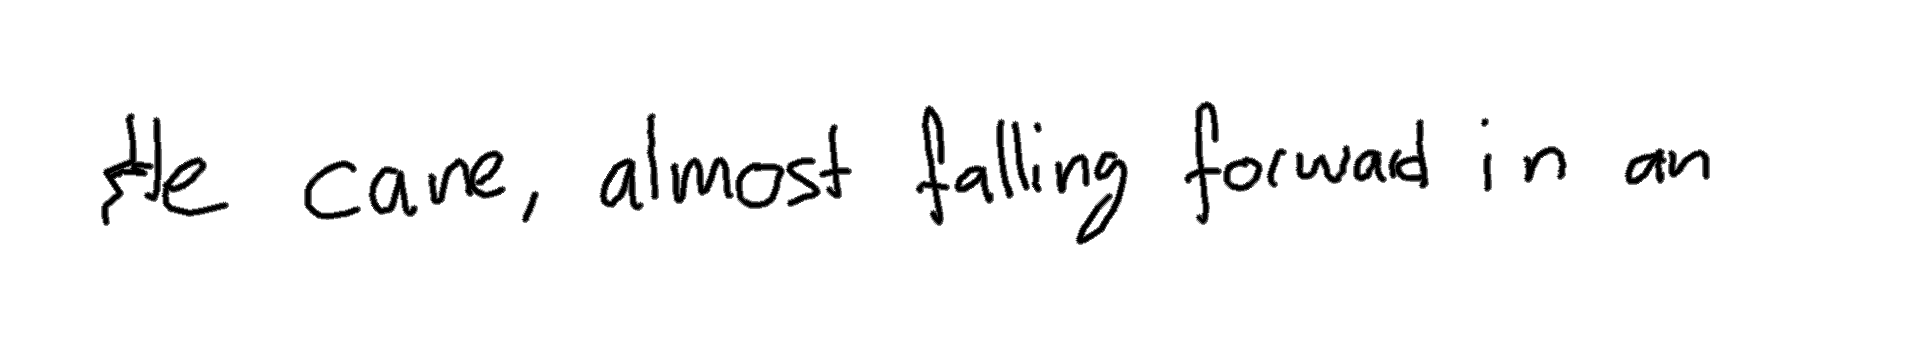 He cane, almost falling forwad in an